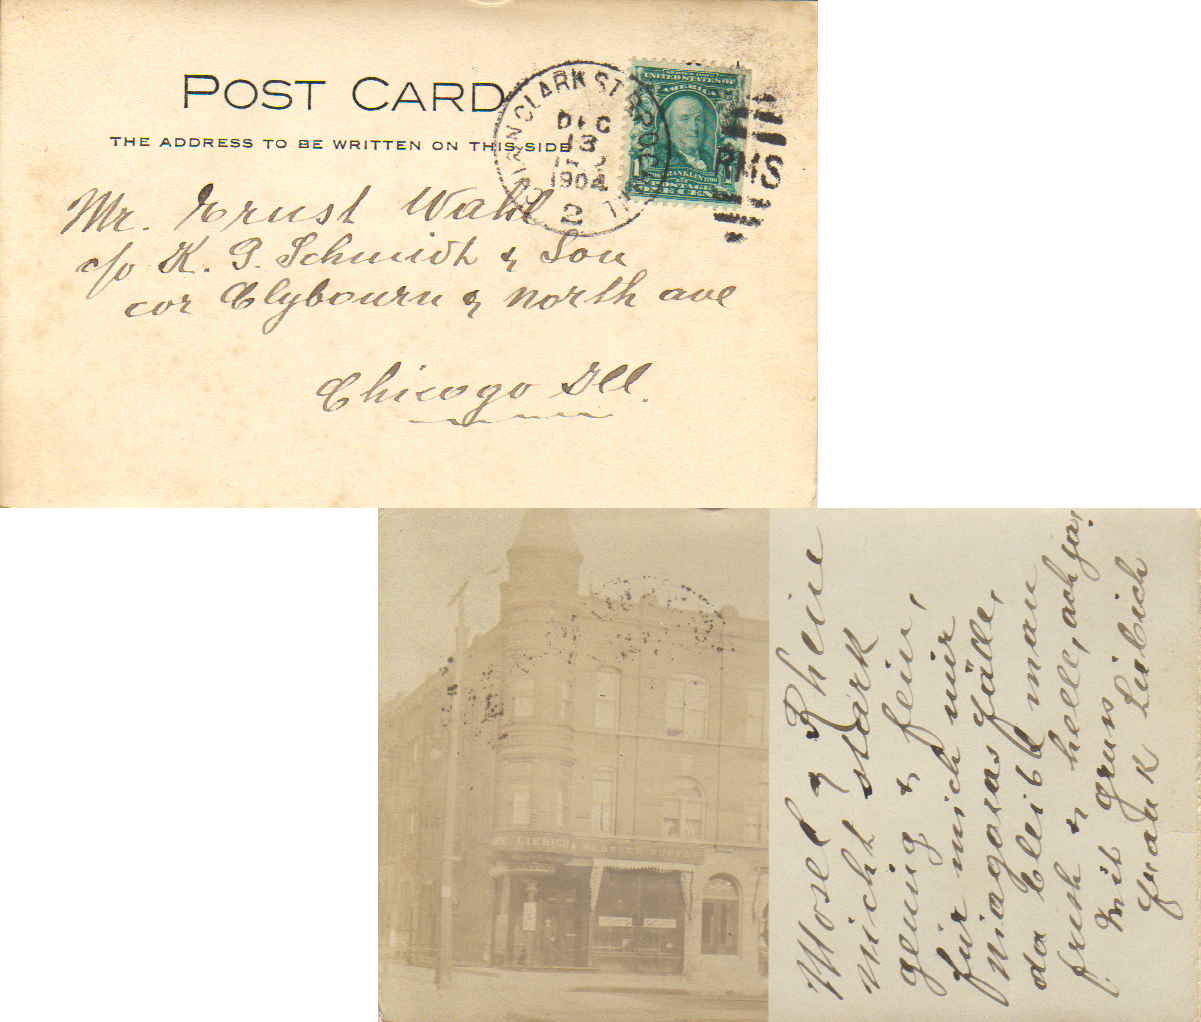 POST CARD
THE ADDRESS TO BE WRITTEN ON THIS SIDE
CLARK ST
DEC
13
1904
2
UNITED STATES OF
AMERICA
FRANKLIN
POSTAGE
ONE CENT
RHS
Mr. Ernst Wahl
c/o K. P. Schmidt & Son
cor Clybourn & North ave
Chicago Ill.
LIEBICH
Mosel & Rhein
nicht stark
genug & fein,
für mich nur
niagaras fälle,
da bleibt man
frish & helle, ach ja!
Mit gruss
Frank Liebich